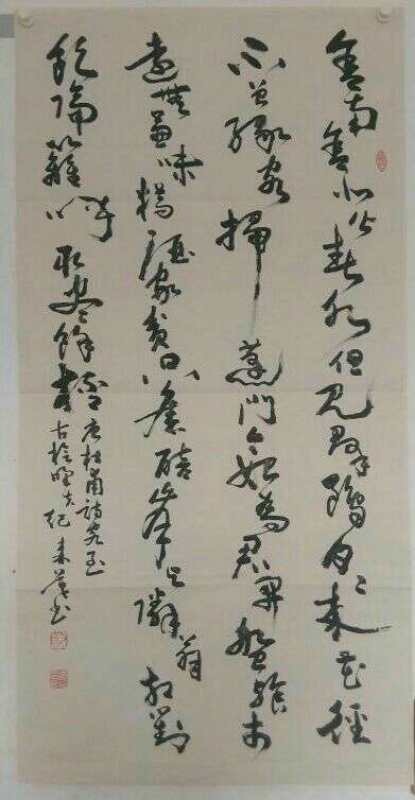 舍南舍北皆春水但见群鸥日日来花径
不曾缘客扫蓬门今始为君开盘飧市
远无兼味樽酒家贫只旧醅肯与邻翁相对
饮隔篱呼取尽余杯 唐杜甫诗客至